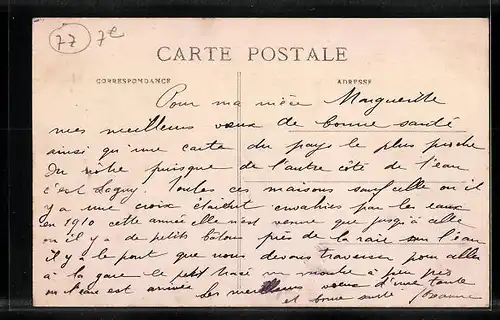 77 7e
CARTE POSTALE
CORRESPONDANCE
ADRESSE
Pour ma nièce Margueritte
mes meilleurs vœux de bonne santé
ainsi qu'une carte du pays le plus proche
du vôtre puisque de l'autre côté de l'eau
c'est Lagny. Toutes ces maisons sauf celle ou il
y a une croix étaient envahies par les eaux
en 1910 cette année elle n'est venue que jusqu'à celle
ou il y a de petits près de la raie sur l'eau
il y a le pont que nous devons traverser pour aller
à la gare le petit tracé montre à peu près
ou l'eau est arrivée Les meilleurs vœux d'une tante
et bonne santé